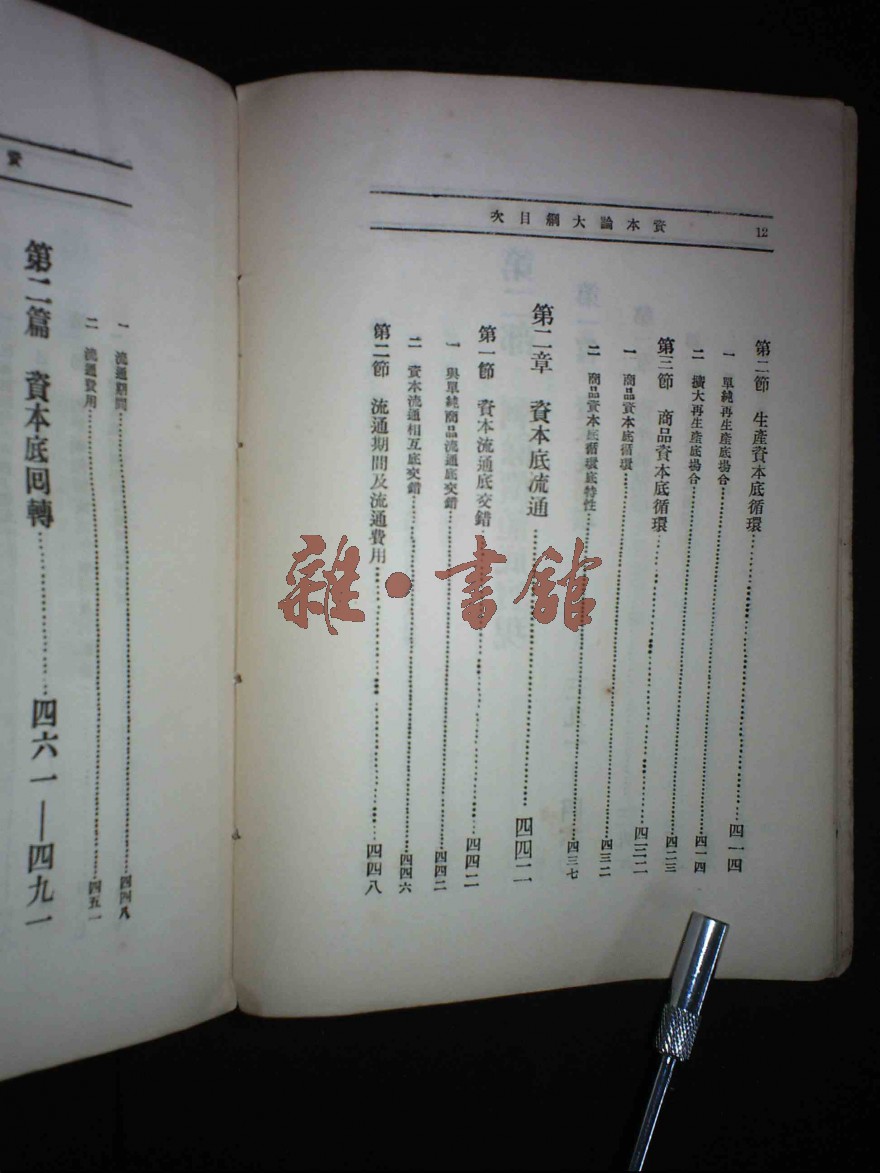 資本論大綱目次 12
第二節 生產資本底循環……四一四
一 單純再生產底場合……四一四
二 擴大再生產底場合……四二三
第三節 商品資本底循環……四三二
一 商品資本底循環……四三二
二 商品資本底循環底特性……四三七
第二章 資本底流通……四四二
第一節 資本流通底交錯……四四二
一 與單純商品流通底交錯……四四二
二 資本流通相互底交錯……四四六
第二節 流通期間及流通費用……四四八
資
一 流通期間……四四八
二 流通費用……四五一
第二篇 資本底囘轉……四六一—四九一
雜·書館